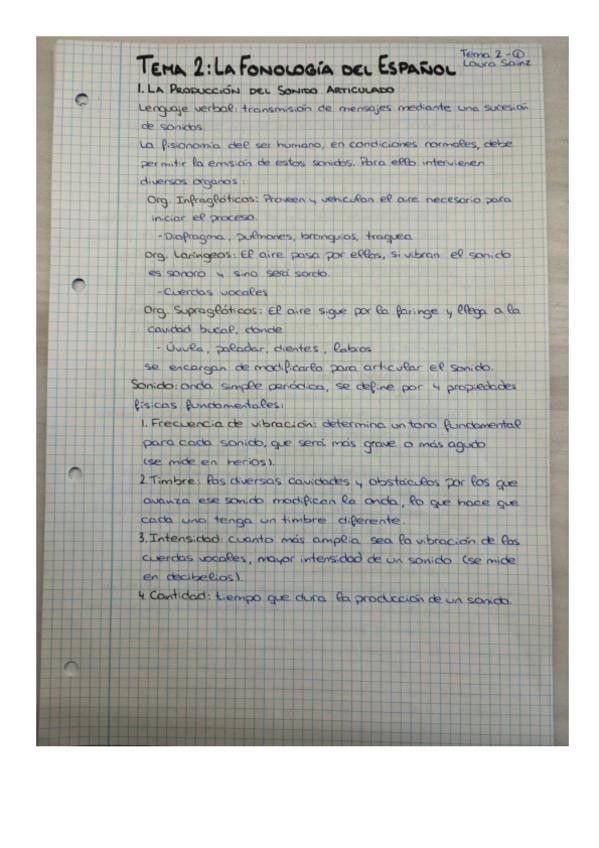 Tema 2-①
Laura Sainz
TEMA 2: LA FONOLOGÍA DEL ESPAÑOL
1. LA PRODUCCIÓN DEL SONIDO ARTICULADO
Lenguaje verbal: transmisión de mensajes mediante una sucesión
de sonidos.
La fisionomía del ser humano, en condiciones normales, debe
permitir la emisión de estos sonidos. Para ello intervienen
diversos órganos:
Org. Infraglóticos: Proveen y vehiculan el aire necesario para
iniciar el proceso.
- Diafragma, pulmones, bronquios, traquea
Org. Laríngeos: El aire pasa por ellos, si vibran el sonido
es sonoro y sino será sordo.
- Cuerdas vocales
Org. Supraglóticos: El aire sigue por la faringe y llega a la
cavidad bucal, donde
- Úvula, paladar, dientes, labios
se encargan de modificarlo para articular el sonido.
Sonido: onda simple periódica, se define por 4 propiedades
físicas fundamentales:
1. Frecuencia de vibración: determina un tono fundamental
para cada sonido, que será más grave o más agudo
(se mide en herios).
2. Timbre: las diversas cavidades y obstáculos por los que
avanza ese sonido modifican la onda, lo que hace que
cada uno tenga un timbre diferente.
3. Intensidad: cuanto más amplia sea la vibración de las
cuerdas vocales, mayor intensidad de un sonido (se mide
en decibelios).
4. Cantidad: tiempo que dura la producción de un sonido.